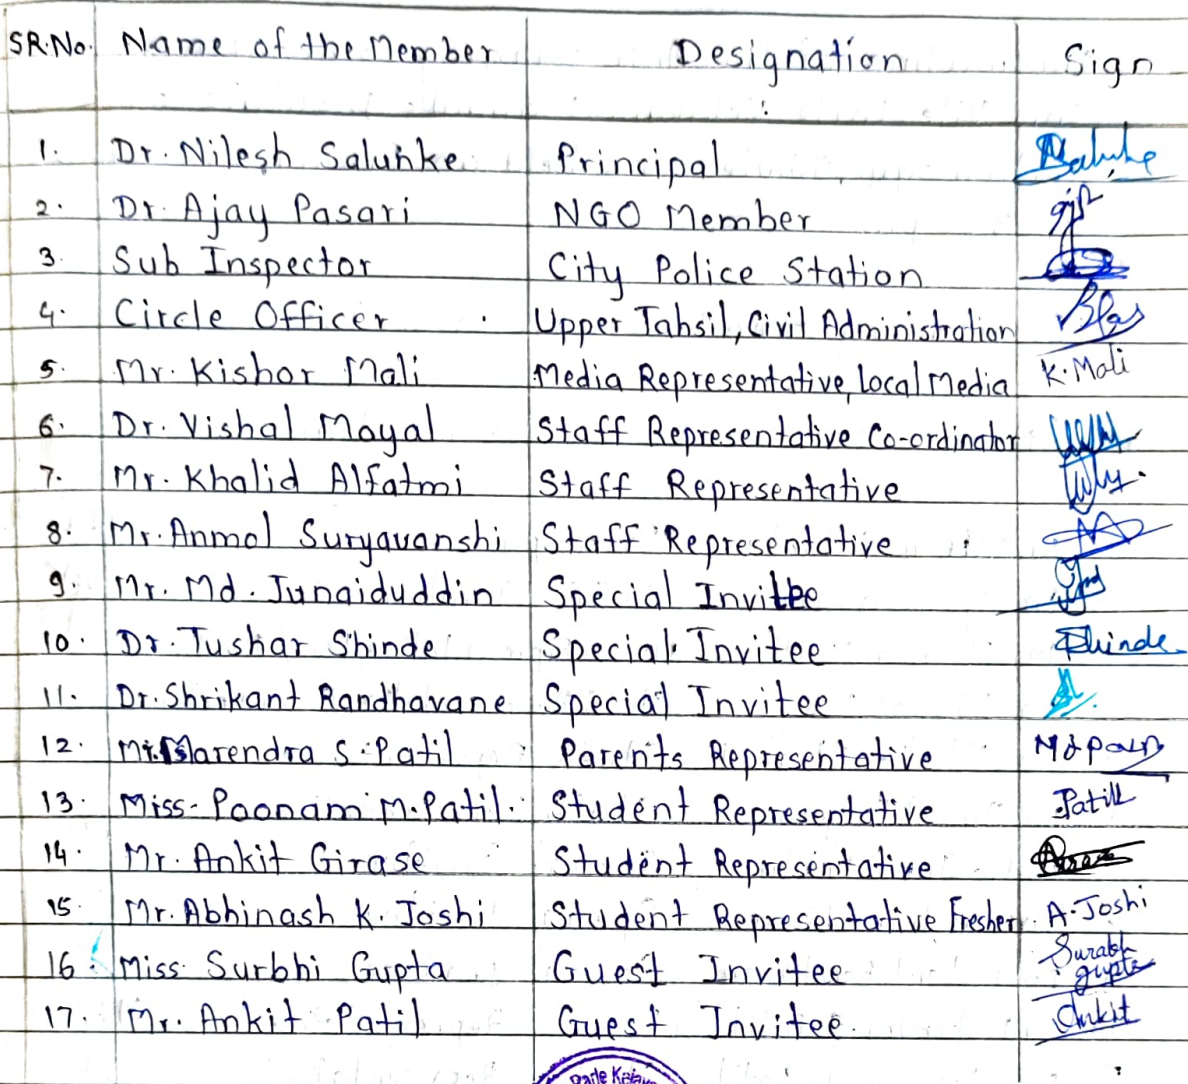 SR.No. Name of the Member Designation Sign
1. Dr. Nilesh Salunke Principal
2. Dr. Ajay Pasari NGO Member
3. Sub Inspector City Police Station
4. Circle Officer Upper Tahsil, Civil Administration
5. Mr. Kishor Mali Media Representative, Local Media K. Mali
6. Dr. Vishal Mayal Staff Representative Co-ordinator
7. Mr. Khalid Alfatmi Staff Representative
8. Mr. Anmol Suryavanshi Staff Representative
9. Mr. Md. Junaiduddin Special Invitee
10. Dr. Tushar Shinde Special Invitee Shinde
11. Dr. Shrikant Randhavane Special Invitee
12. Mr. Narendra S. Patil Parents Representative
13. Miss. Poonam M. Patil. Student Representative Patil
14. Mr. Ankit Girase Student Representative
15. Mr. Abhinash K. Joshi Student Representative Fresher A. Joshi
16. Miss Surbhi Gupta Guest Invitee Surabhi gupta
17. Mr. Ankit Patil Guest Invitee. Ankit